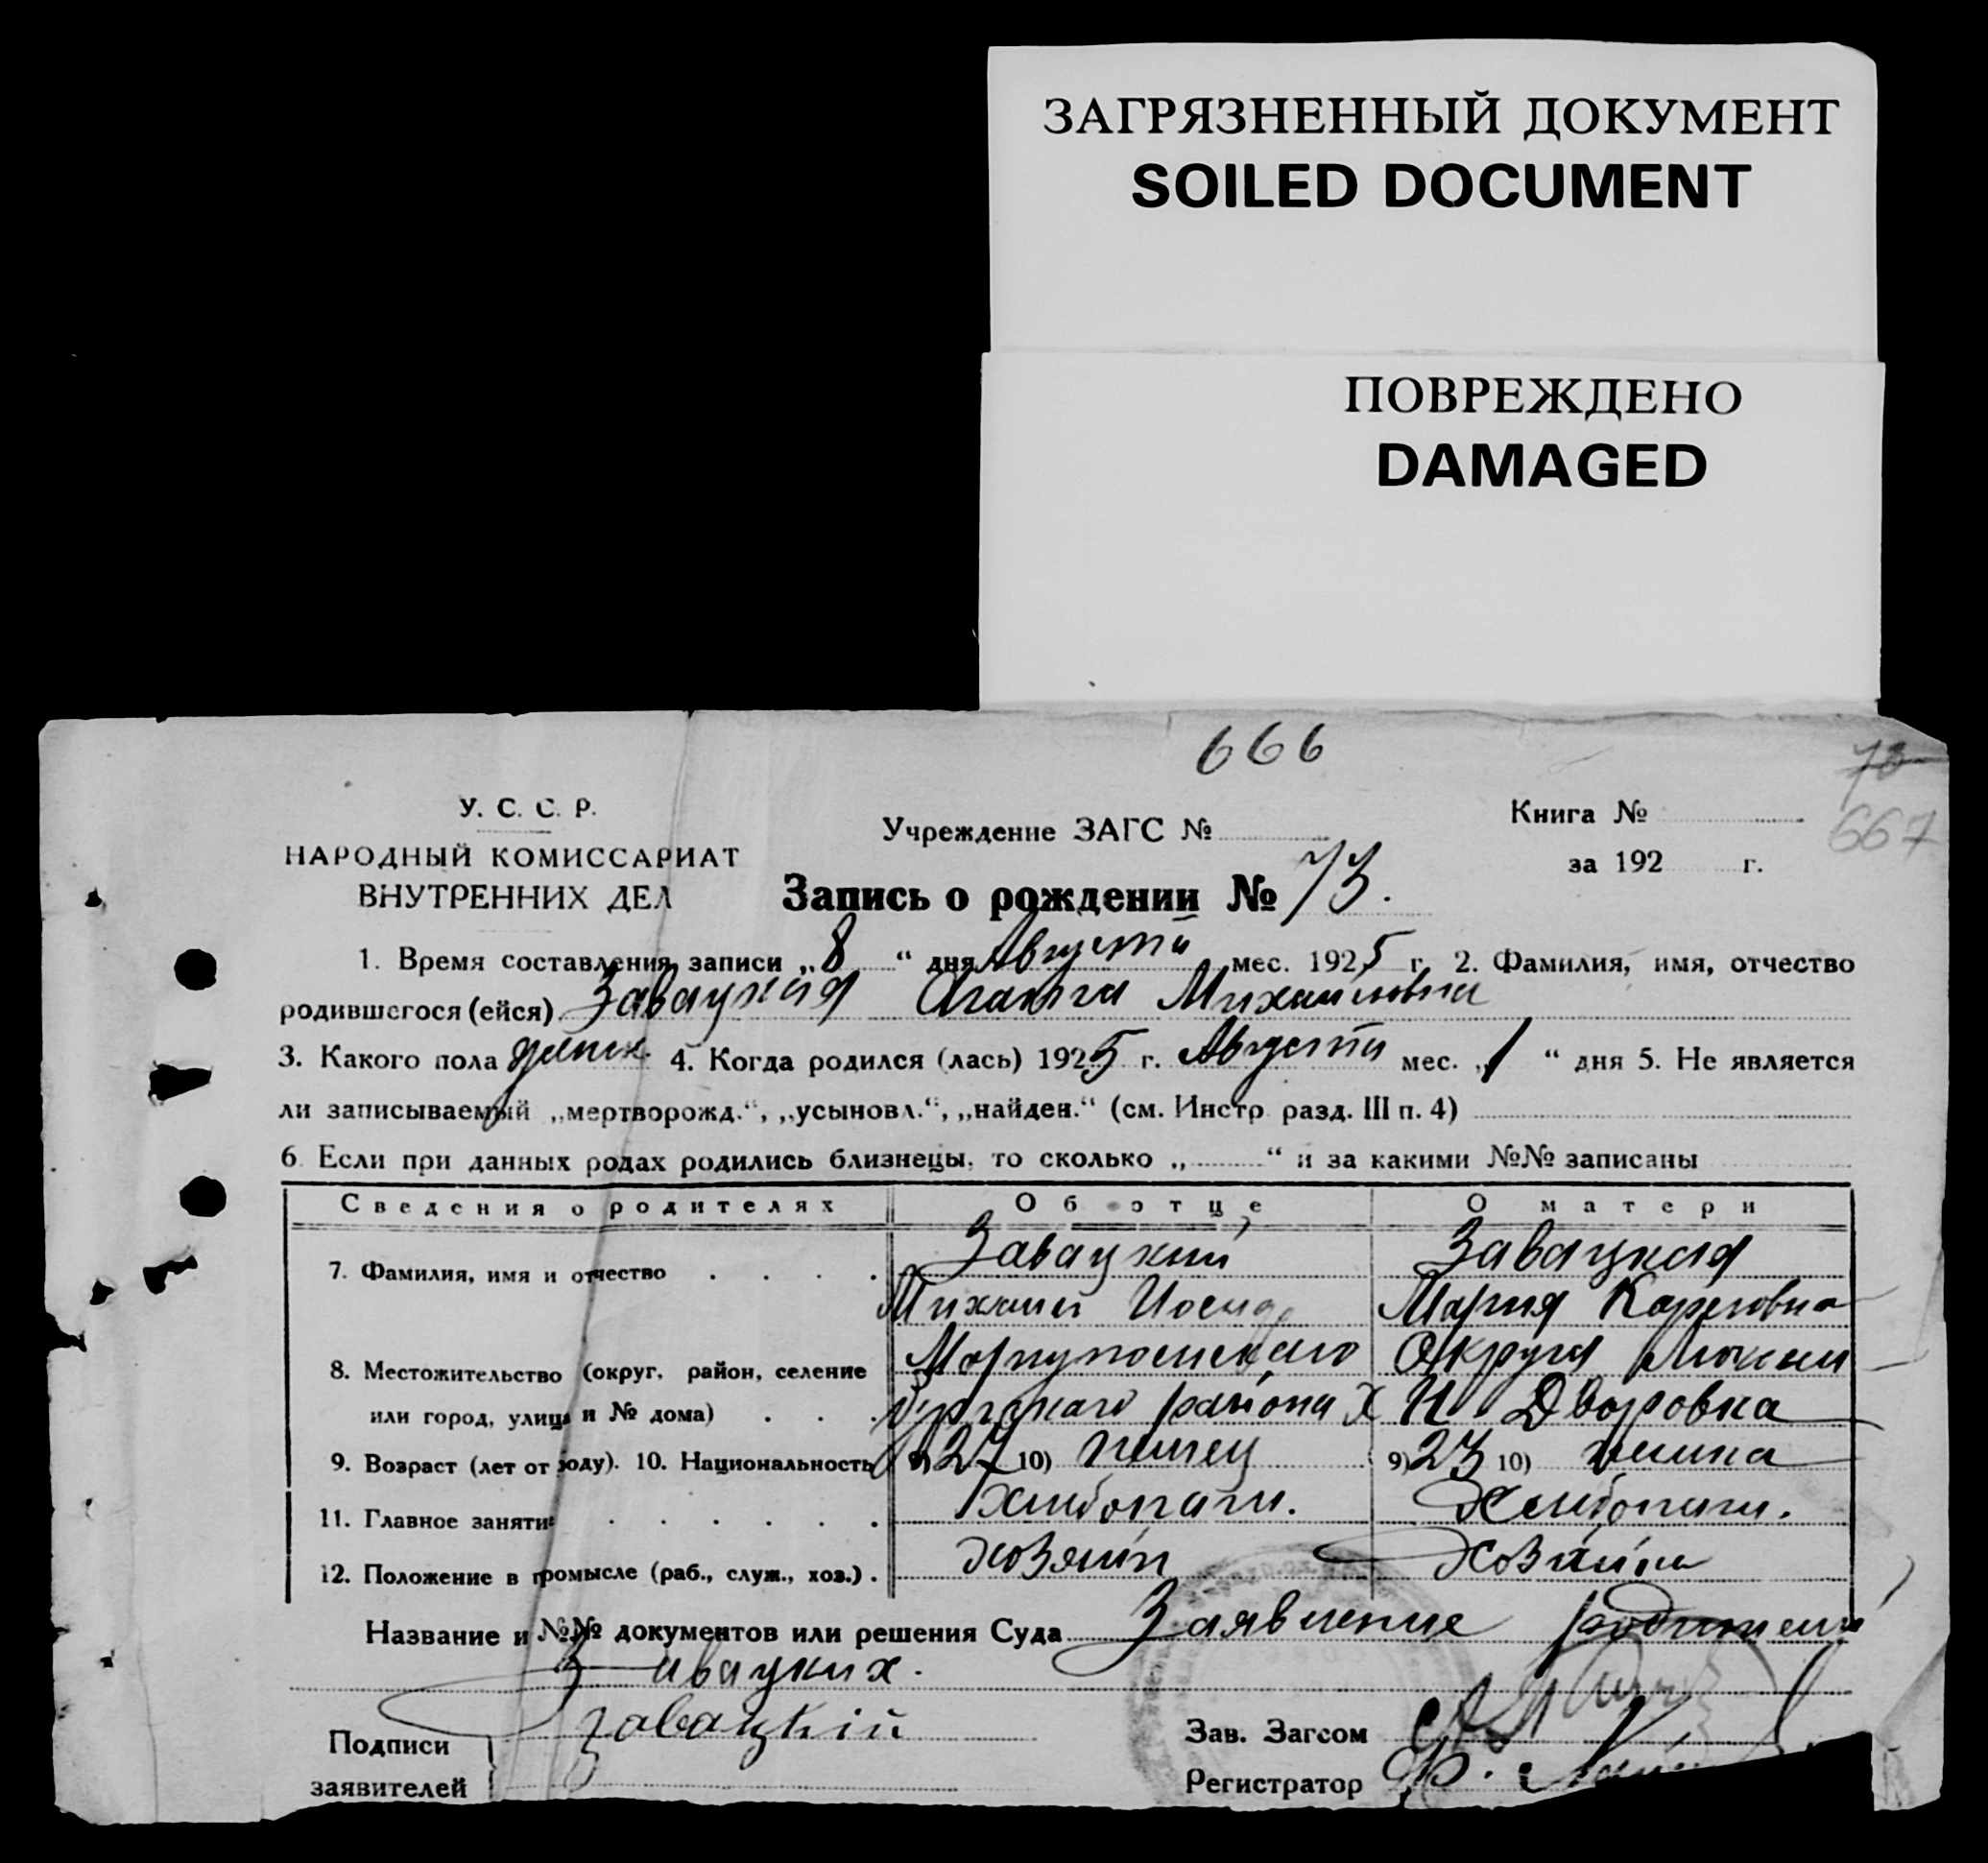 ЗАГРЯЗНЕННЫЙ ДОКУМЕНТ
SOILED DOCUMENT
ПОВРЕЖДЕНО
DAMAGED
666
70
667
У. С. С. Р.
НАРОДНЫЙ КОМИССАРИАТ
ВНУТРЕННИХ ДЕЛ
Учреждение ЗАГС №
Книга №
за 192 г.
Запись о рождении № 73.
1. Время составления записи „8“ дня Августа мес. 1925 г. 2. Фамилия, имя, отчество
родившегося (ейся) Завацкая Агата Михайловна
3. Какого пола женск. 4. Когда родился (лась) 1925 г. Августа мес. „1“ дня 5. Не является
ли записываемый „мертворожд.“, „усыновл.“, „найден.“ (см. Инстр. разд. III п. 4)
6. Если при данных родах родились близнецы, то сколько „ “ и за какими №№ записаны
Сведения о родителях Об отце О матери
7. Фамилия, имя и отчество Завацкий Завацкая
Михаил Мария Карловна
8. Местожительство (округ, район, селение Мариупольского Округа
или город, улица и № дома) района Х Н Дворовка
9. Возраст (лет от роду). 10. Национальность 9) 27 10) немец 9) 23 10) немка
11. Главное занятие Хлебопаш. Хлебопаш.
12. Положение в промысле (раб., служ., хоз.) хозяин хозяйка
Название и №№ документов или решения Суда Заявление родителей
Завацких.
Подписи
заявителей
Завацкій
Зав. Загсом
Регистратор